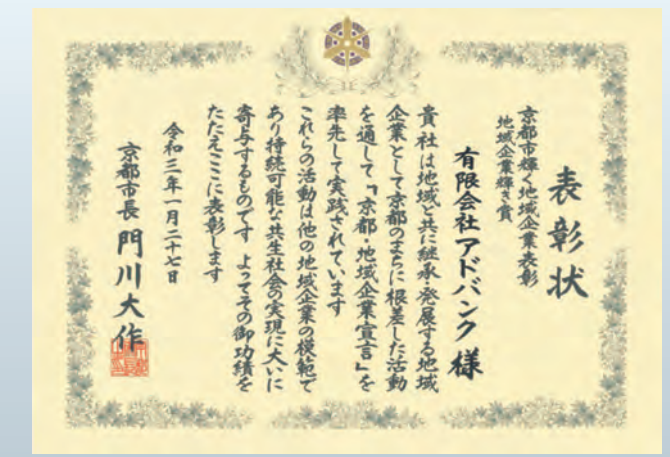 表彰状
京都市輝く地域企業表彰
地域企業輝き賞
有限会社アドバンク 様
貴社は地域と共に継承・発展する地域
企業として京都のまちに根差した活動
を通して「京都・地域企業宣言」を
率先して実践されています
これらの活動は他の地域企業の模範で
あり持続可能な共生社会の実現に大いに
寄与するものです よってその御功績を
たたえここに表彰します
令和三年一月二十七日
京都市長 門川大作